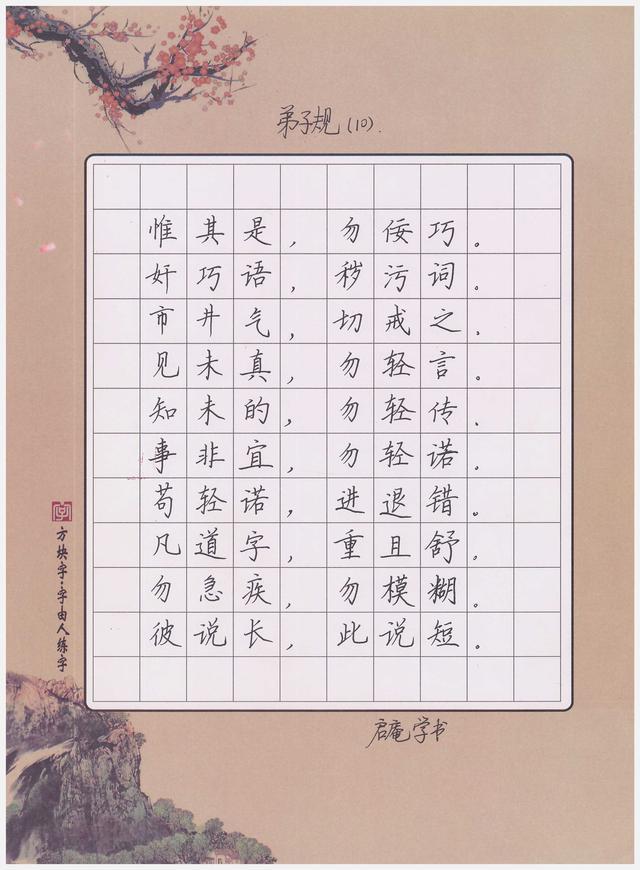 弟子规(10).
惟其是,勿佞巧。
奸巧语,秽污词。
市井气,切戒之.
见未真,勿轻言。
知未的,勿轻传.
事非宜,勿轻诺。
苟轻诺,进退错。
凡道字,重且舒。
勿急疾,勿模糊。
彼说长,此说短。
字
方块字·字由人练字
启庵学书